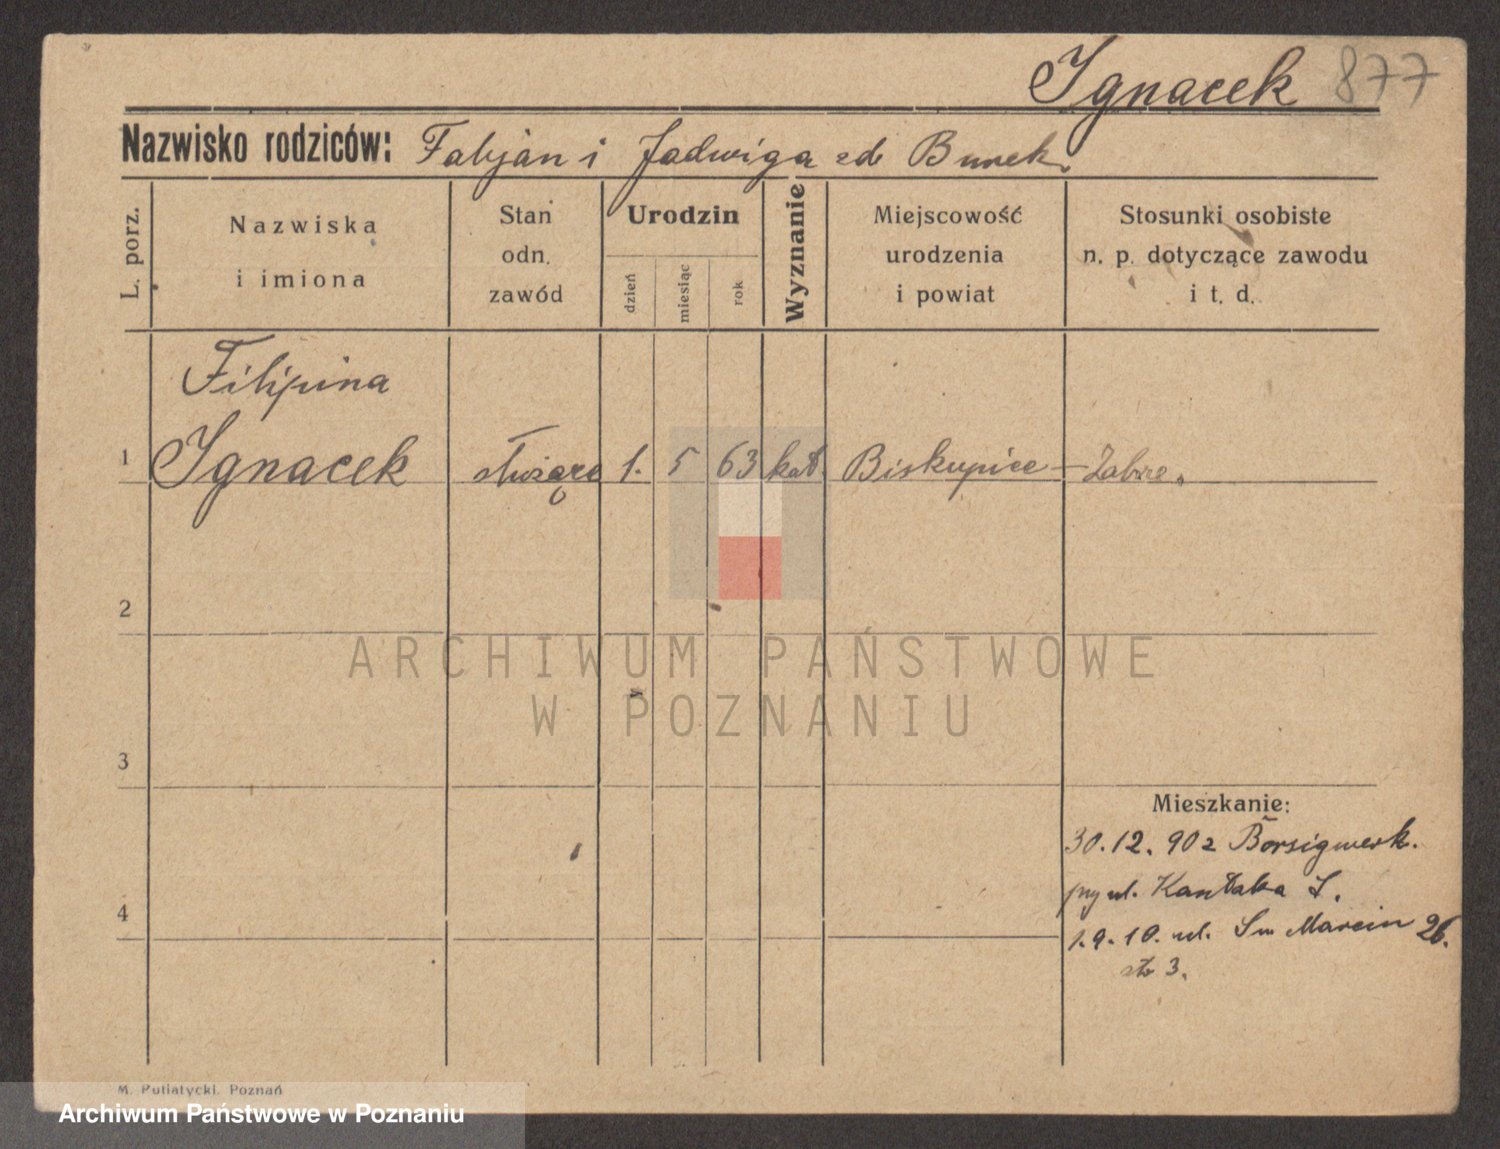 Ignacek 877
Nazwisko rodziców: Fabjan i Jadwiga zd Burek.
L. porz.
Nazwiska
i imiona
Stan
odn.
zawód
Urodzin
dzień
miesiąc
rok
Wyznanie
Miejscowość
urodzenia
i powiat
Stosunki osobiste
n. p. dotyczące zawodu
i t. d.
Filipina
1 Ignacek służąca 1. 5 63 kat Biskupice - Zabrze.
2
ARCHIWUM PAŃSTWOWE
W POZNANIU
3
Mieszkanie:
30.12.902 Borsigwerk.
ul. Kantaka
4
1.9.10. ul. Św Marcin 26.
3.
M. Putiatycki. Poznań
Archiwum Państwowe w Poznaniu